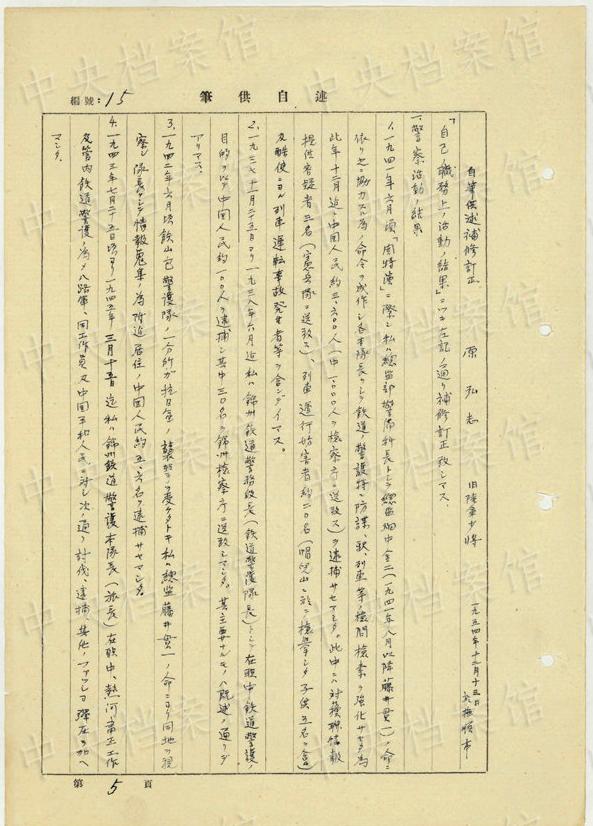 中央档案馆
編號：15
筆供自述
自筆供述補修訂正
原弘志
旧陸軍少将
一九五四年十二月十三日
於撫順市
「自己ノ職務上ノ活動ノ結果」ニツキ左記ノ通リ補修訂正致シマス。
一、警察活動ノ結果
1. 一九四一年六月頃「関特演」ニ際シ私ハ総監部警備科長トシテ総監畑中金二(一九四一年八月以降藤井貫一)ノ命ニ
依リ之ニ協力スル為ノ命令ヲ成作シ各本隊長ヲシテ鉄道ノ警護特ニ防諜、駅、列車等ノ検問検索ヲ強化サセタ為
此年十二月迄ニ中国人民約三、六〇〇人(内一〇〇〇人ヲ検察庁ニ送致ス)ヲ逮捕サセマシタ。此中ニハ対蘇聯情報
提供容疑者三名(憲兵隊ニ送致ス)、列車運行妨害者約二〇名(帽児山ニ於テ検挙シタ子供五名ヲ含ム)
及酷使ニヨル列車運転事故発生者等ヲ含ンデイマス。
2. 一九三七年十一月二十五日ヨリ一九三八年六月迄私ハ錦州鉄道警務段長(鉄道警護隊長)トシテ在職中鉄道警護ノ
目的ヲ以テ中国人民約一〇〇人ヲ逮捕シ其中三〇名ヲ錦州検察庁ニ送致シマシタ。其主要ナルモノハ既述ノ通リデ
アリマス。
3. 一九四二年六月頃鉄山包警護隊ノ一分所ガ抗日軍ノ襲撃ヲ受ケタトキ私ハ総監藤井貫一ノ命ニヨリ同地ヲ視
察シ隊長ヲシテ情報蒐集ノ為附近居住ノ中国人民約五、六名ヲ逮捕サセマシタ。
4. 一九四三年七月二十五日頃ヨリ一九四五年三月十五日迄私ハ錦州鉄道警護本隊長(旅長)在職中、熱河粛正工作
及管内鉄道警護ノ為メ八路軍、同工作員及中国平和人民ニ対シ次ノ通リ討伐、逮捕、其他ノファッショ弾圧ヲ加ヘ
マシタ。
第5頁